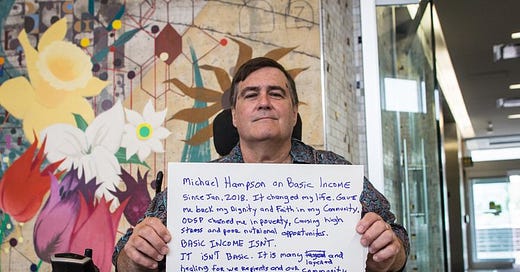 Michael Hampson on BASIC INCOME
Since Jan, 2018. It changed my life. Gave
me back my Dignity and Faith in my Community.
ODSP chained me in poverty, Causing high
stress and poor nutritional opportunites.
BASIC INCOME ISNT.
IT isN'T BASIC. It is many and
layered
healing for we recipients and our community